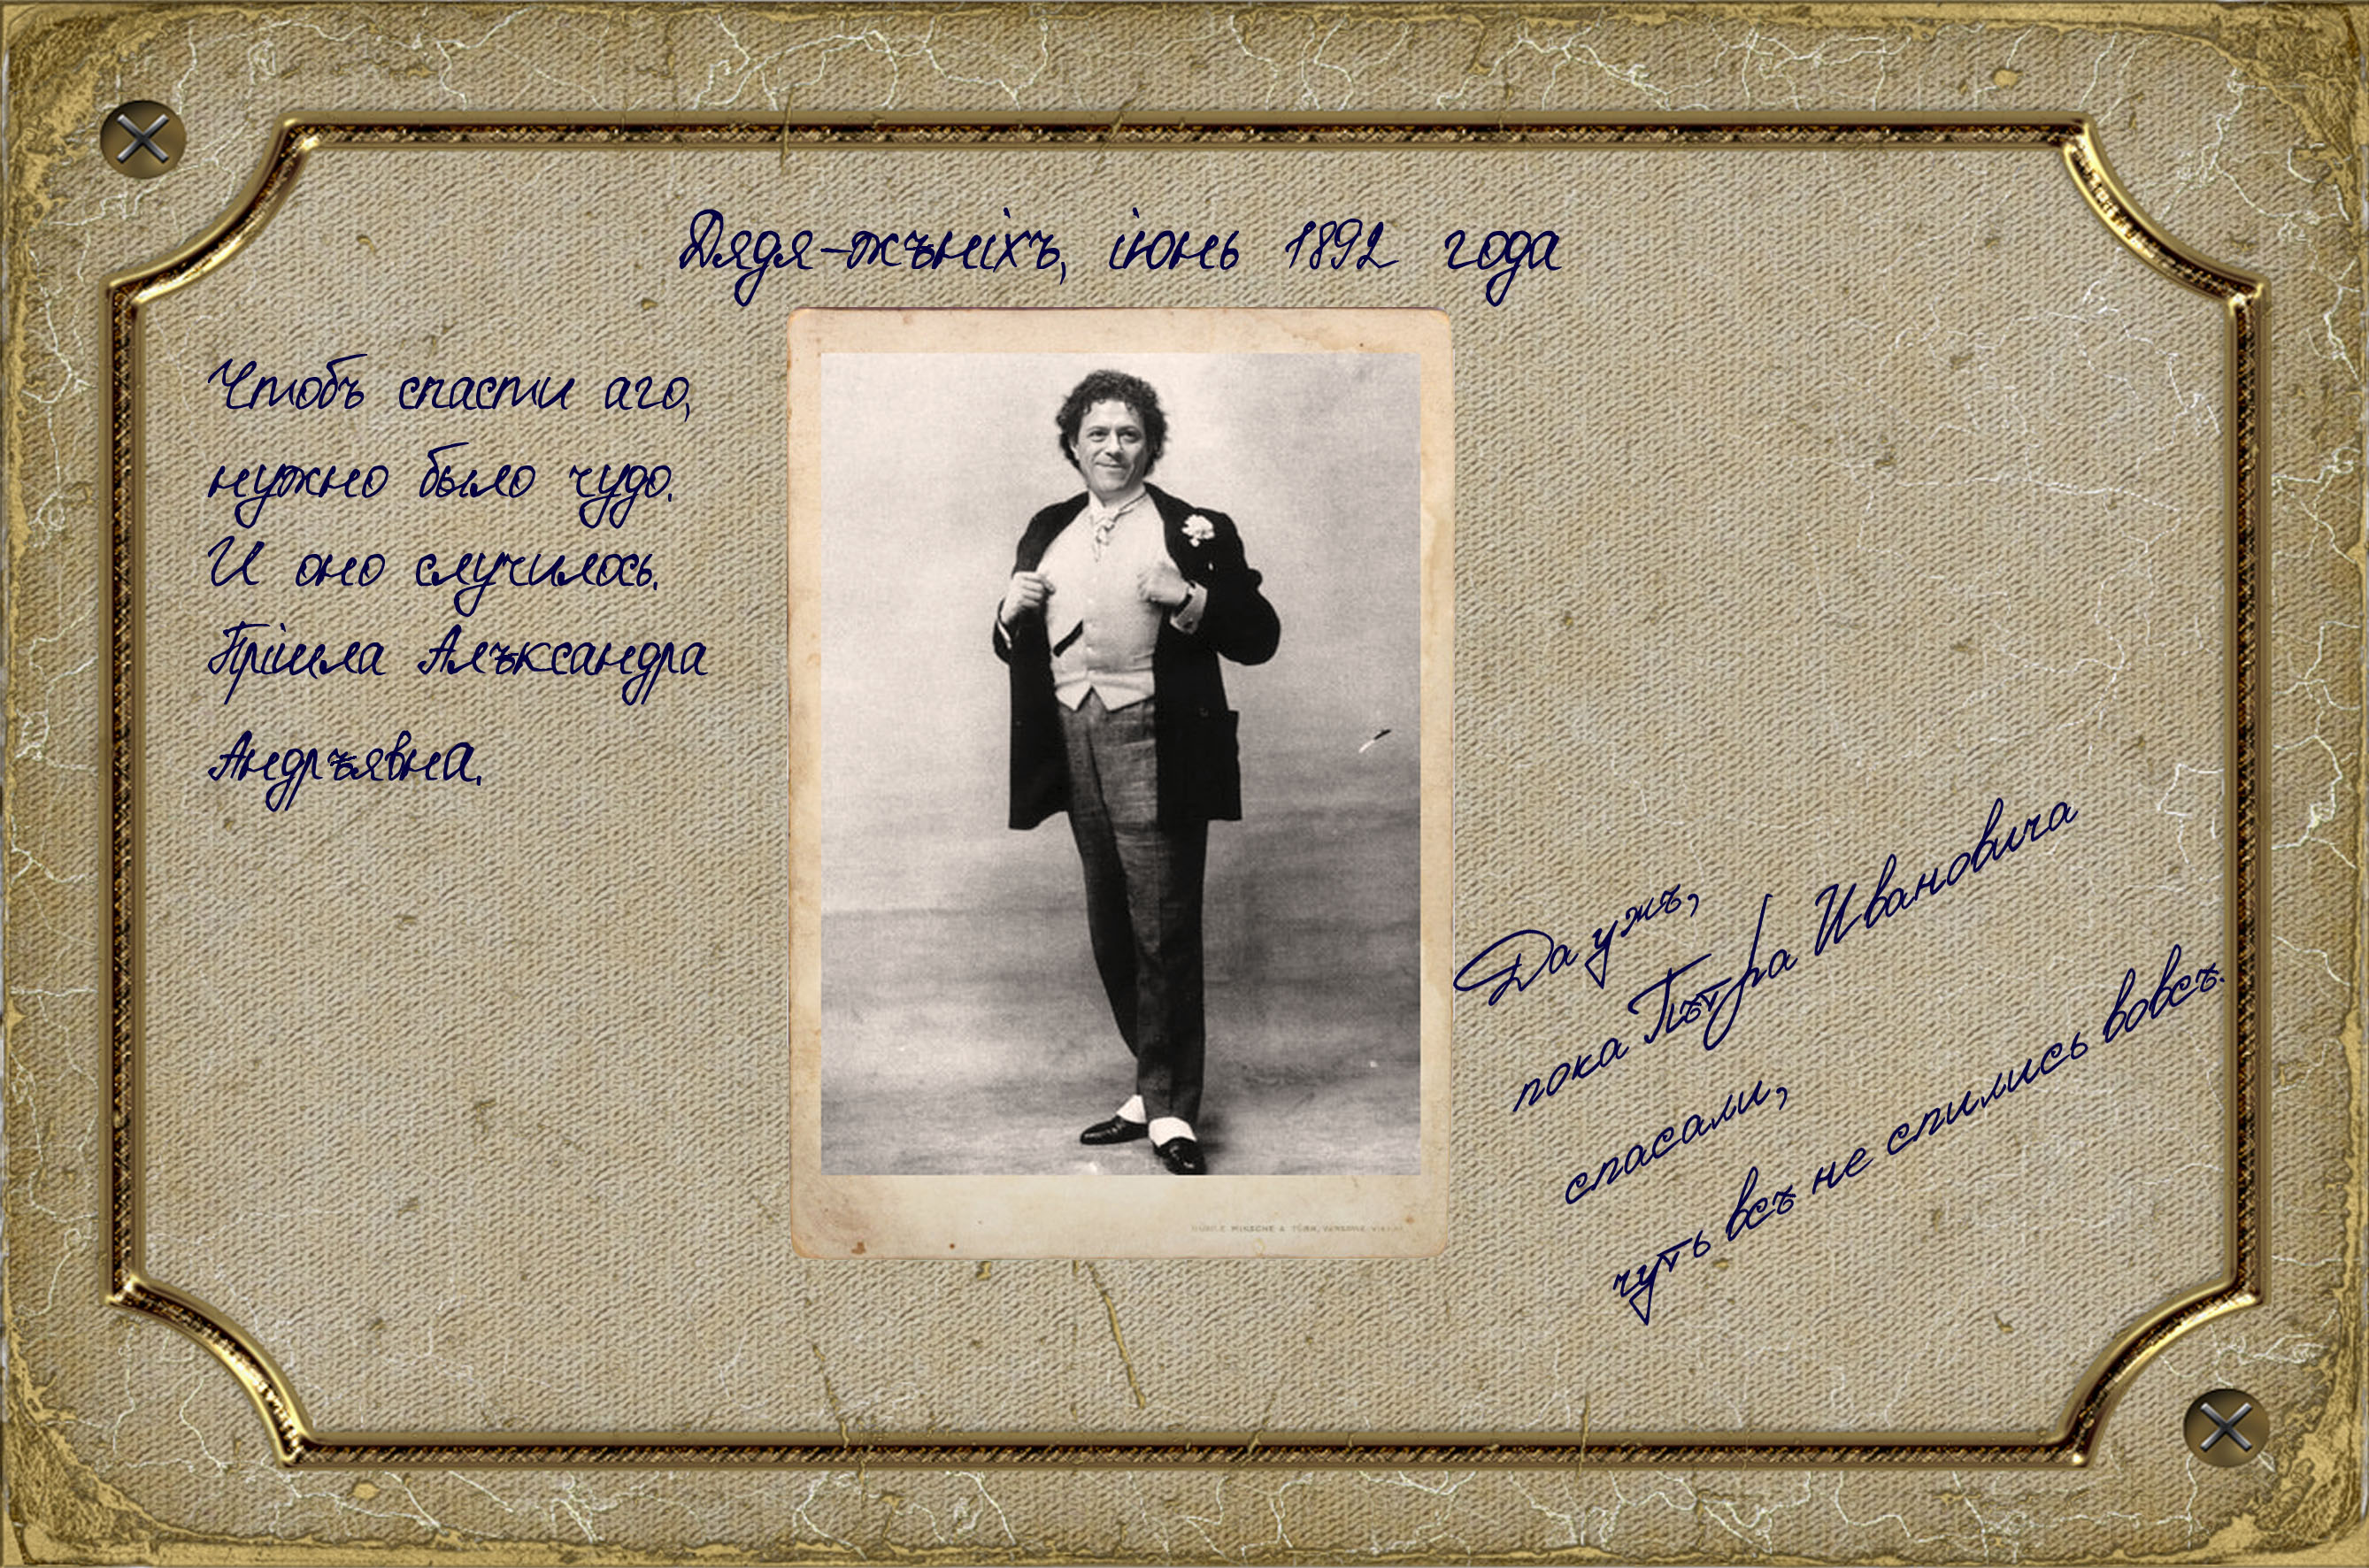 Дядя-жъніхъ, іюнь 1892 года
Чтобъ спасти аго,
нужно было чудо.
И оно случилось.
Прішла Алъксандра
Андръявна.
Да ужъ,
пока Пътра Ивановича
спасали,
чуть всъ не спились вовсъ.